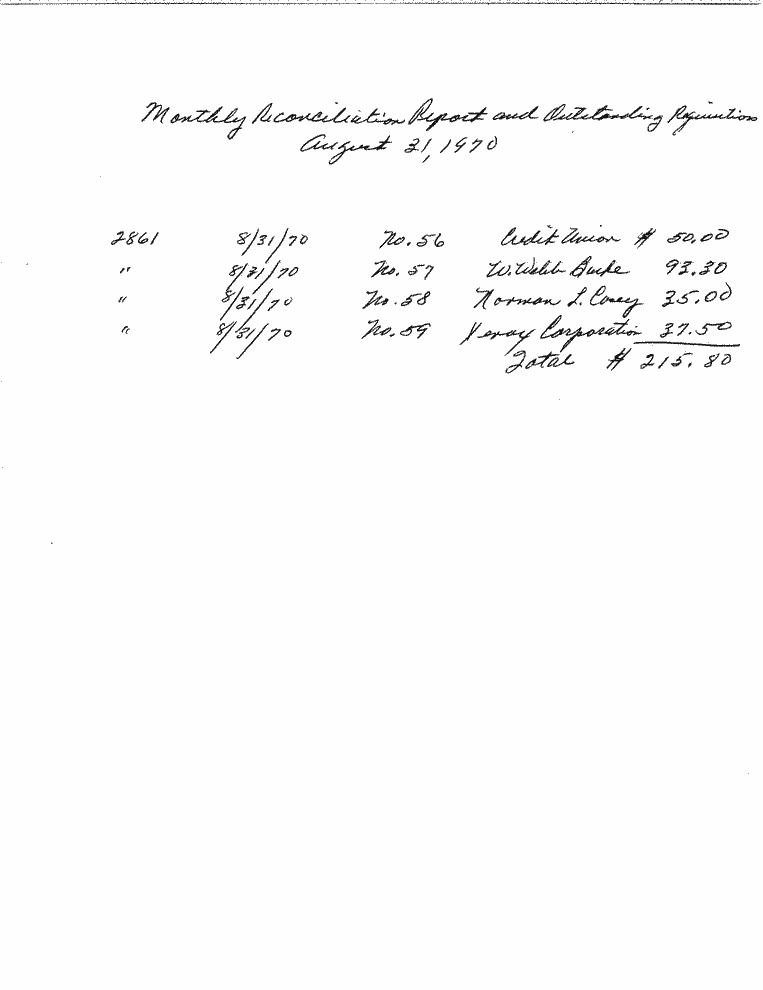 Monthly Reconciliation Report and Outstanding Requisitions
August 31, 1970
2861 8/31/70 No. 56 Credit Union $ 50.00
" 8/31/70 No. 57 W. Webb Burke 93.30
" 8/31/70 No. 58 Norman L. Casey 35.00
" 8/31/70 No. 59 Xerox Corporation 37.50
Total $ 215.80